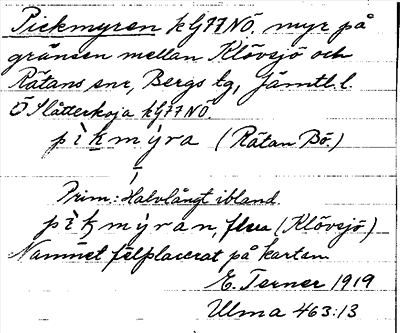 Pickmyren k GJ7 NÖ. myr på
gränsen mellan Klövsjö och
Rätans snr, Bergs tg, Jämtl. l.
Ö Slåtterkoja k GJ7 NÖ.
pìkmýra (Rätan Bö.)
Prim.: Halvlångt ibland.
mýran, flera (Klövsjö)
Namnet felplacerat på kartan.
E. Terner 1919
Ulma 463:13